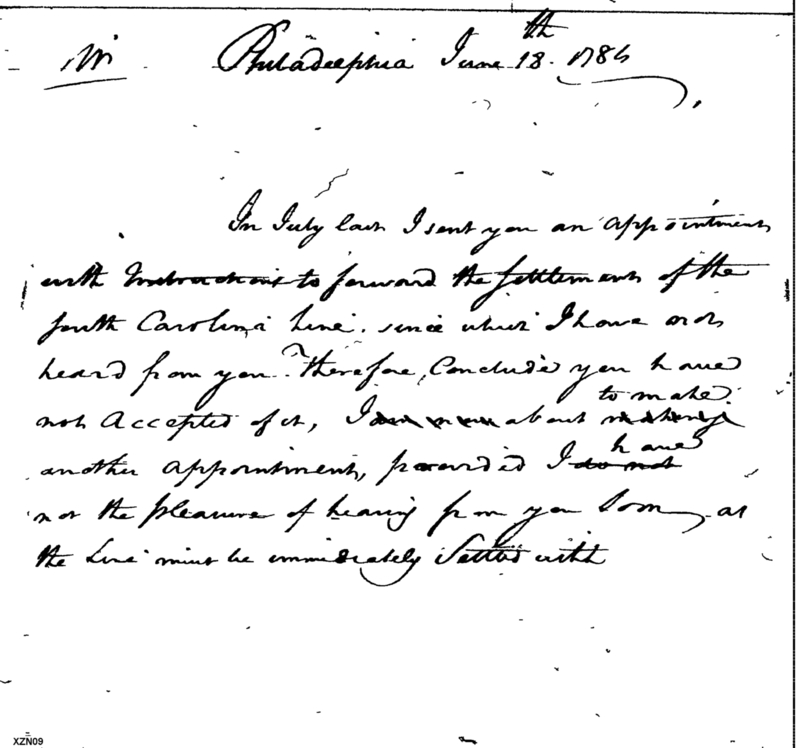 Sir Philadelphia June 18th 1784
In July last I sent you an appointment
with Instructions to forward the Settlement of the
south Carolina Line. since which I have not
heard from you. Therefore, Conclude you have
not Accepted of it, I am now about making to make
another appointment, provided I do not have
not the pleasure of hearing from you Soon, as
the Line must be immidiately Settled with
XZN09